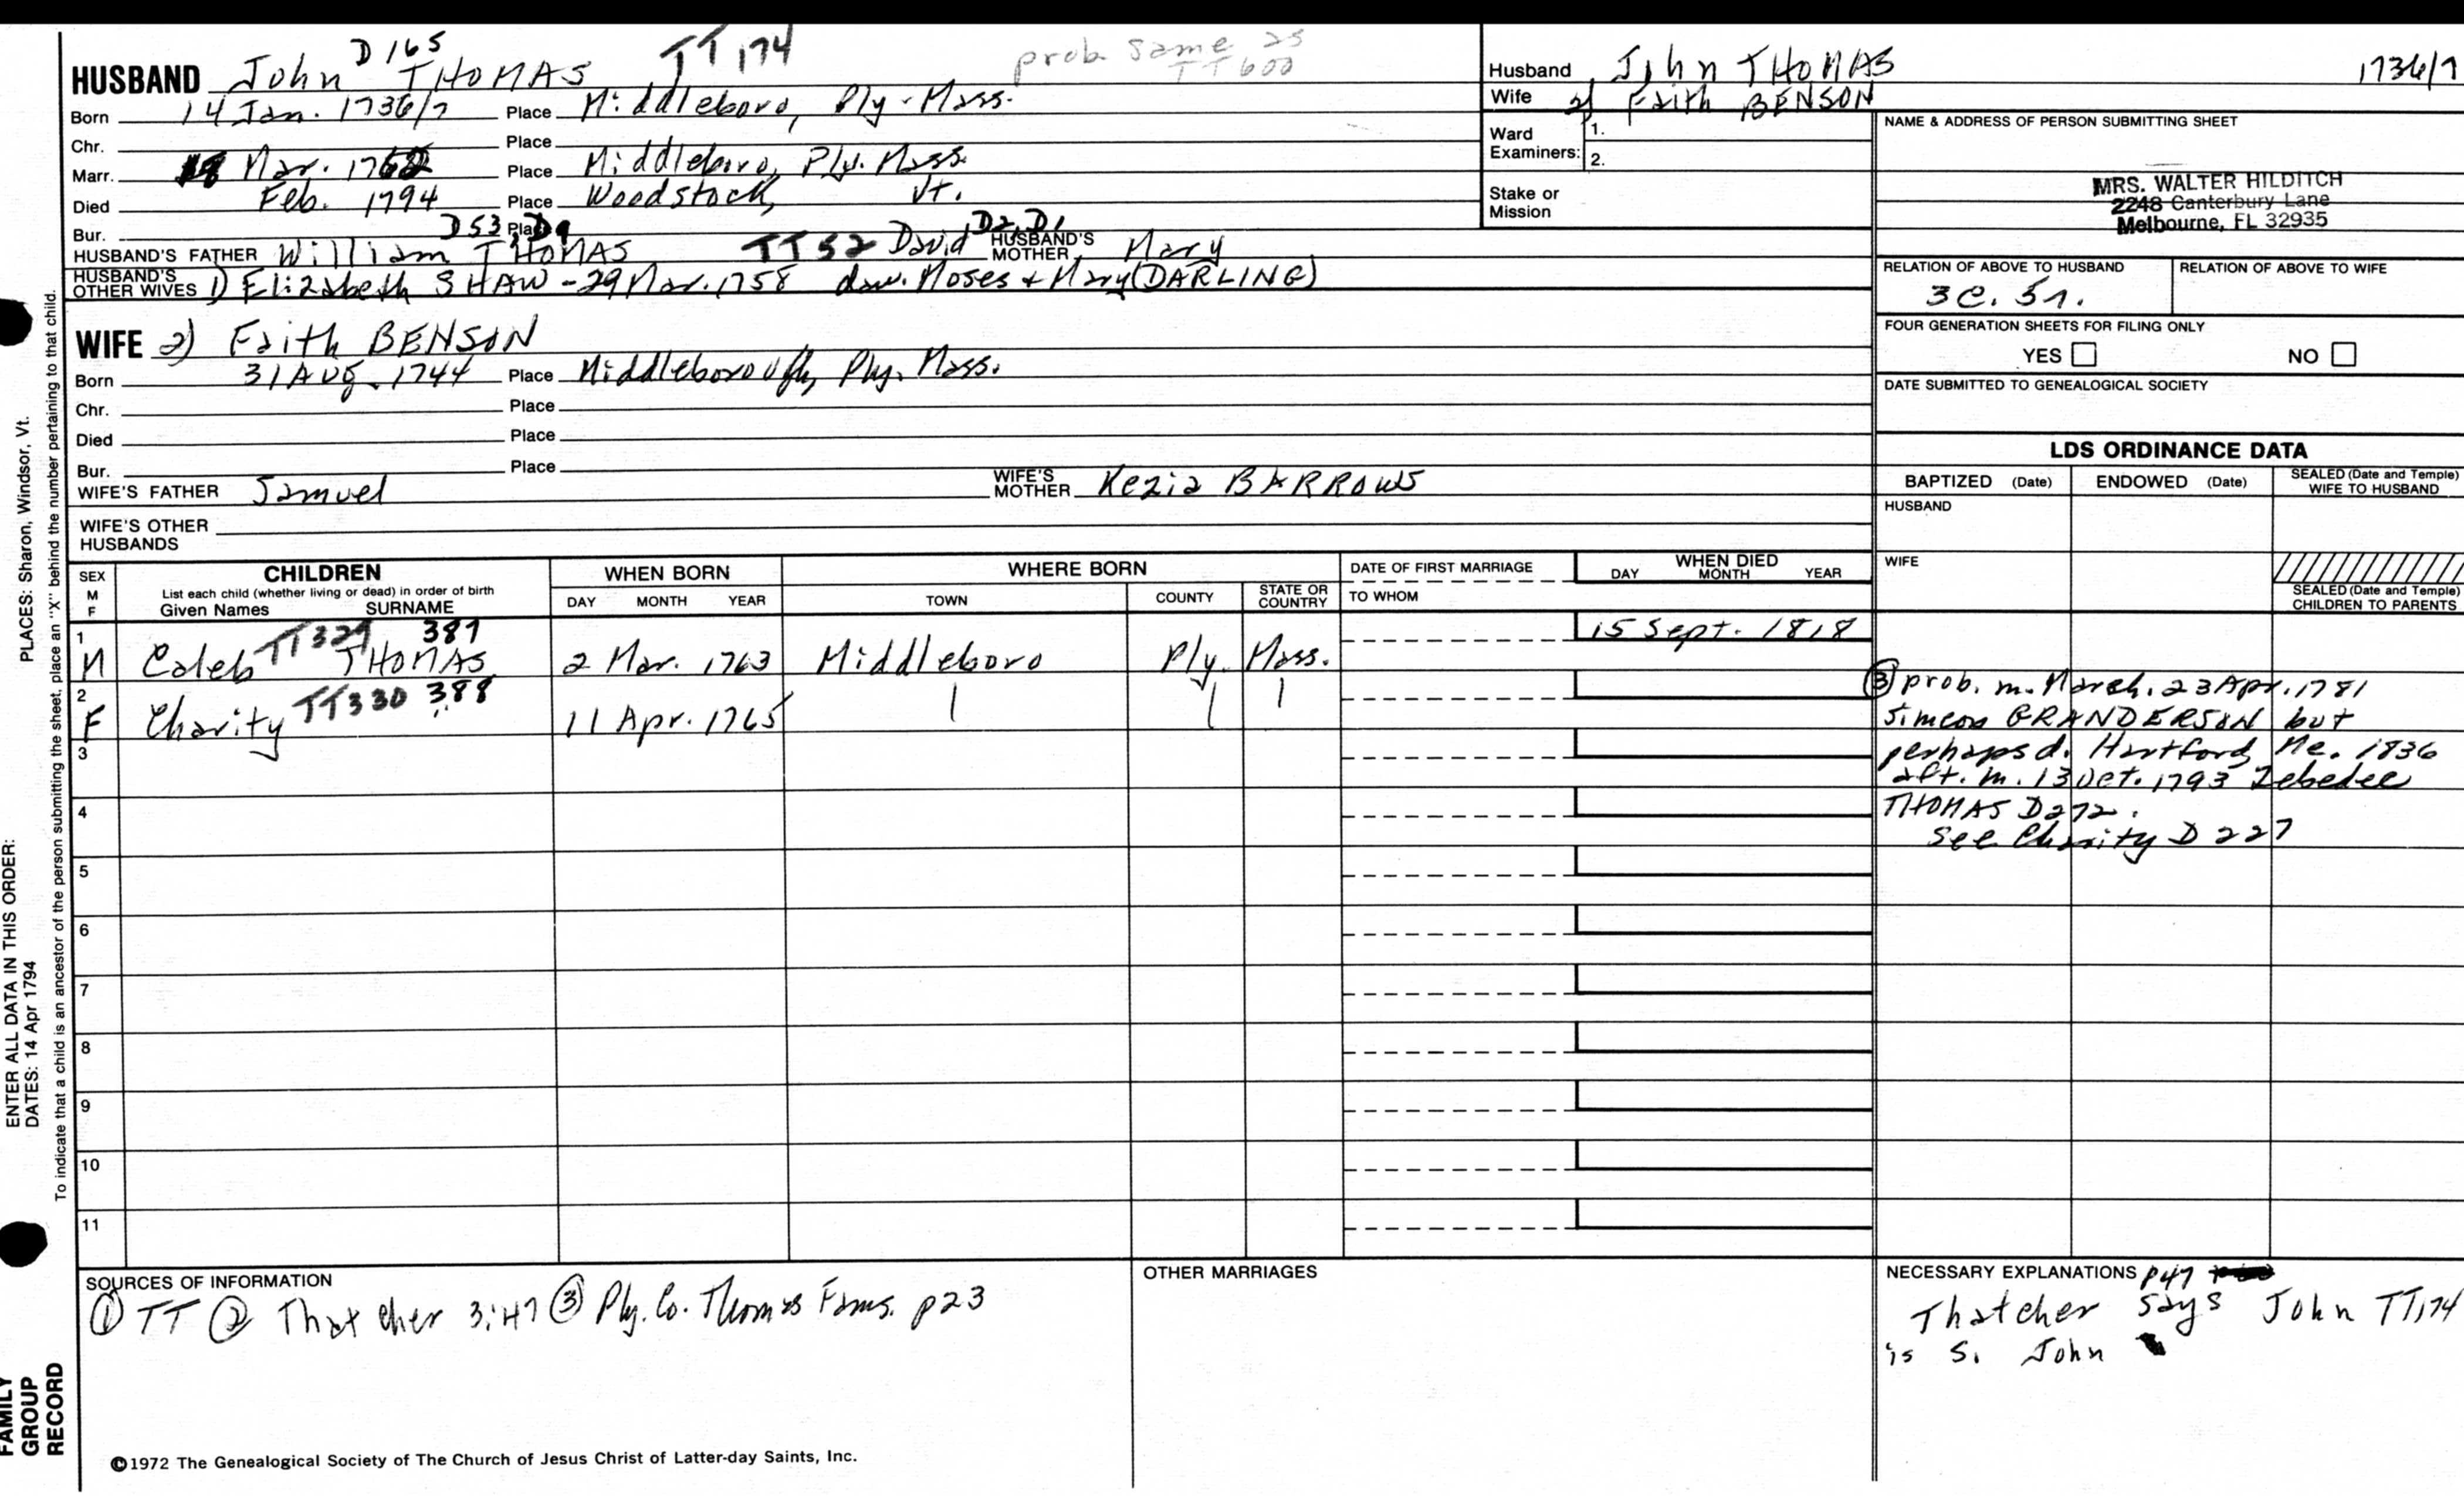 D 165 TT 174 prob. same as TT 600
HUSBAND John THOMAS
Born 14 Jan. 1736/7 Place Middleboro, Ply. Mass.
Chr. Place
Marr. Mar. 1762 Place Middleboro, Ply. Mass.
Died Feb. 1794 Place Woodstock, Vt.
Bur. Place
D53 D9 D2, D1
HUSBAND'S FATHER William THOMAS TT52 David HUSBAND'S MOTHER Mary
HUSBAND'S OTHER WIVES 1) Elizabeth SHAW - 29 Mar. 1758 dau. Moses + Mary (DARLING)
WIFE 2) Faith BENSON
Born 31 Aug. 1744 Place Middleborough, Ply. Mass.
Chr. Place
Died Place
Bur. Place
WIFE'S FATHER Samuel WIFE'S MOTHER Kezia BARROWS
WIFE'S OTHER HUSBANDS
Husband John THOMAS 1736/7
Wife 2) Faith BENSON
Ward Examiners: 1.
2.
Stake or Mission
NAME & ADDRESS OF PERSON SUBMITTING SHEET
MRS. WALTER HILDITCH
2248 Canterbury Lane
Melbourne, FL 32935
RELATION OF ABOVE TO HUSBAND RELATION OF ABOVE TO WIFE
3C. 5r.
FOUR GENERATION SHEETS FOR FILING ONLY
YES NO
DATE SUBMITTED TO GENEALOGICAL SOCIETY
LDS ORDINANCE DATA
BAPTIZED (Date) ENDOWED (Date) SEALED (Date and Temple) WIFE TO HUSBAND
HUSBAND
WIFE
SEALED (Date and Temple) CHILDREN TO PARENTS
SEX M F CHILDREN WHEN BORN WHERE BORN DATE OF FIRST MARRIAGE WHEN DIED
List each child (whether living or dead) in order of birth
Given Names SURNAME DAY MONTH YEAR TOWN COUNTY STATE OR COUNTRY TO WHOM DAY MONTH YEAR
1 TT329 387 15 Sept. 1818
M Caleb THOMAS 2 Mar. 1763 Middleboro Ply. Mass.
2 TT330 388
F Charity 11 Apr. 1765
3
4
5
6
7
8
9
10
11
③ prob. m. March. 23 Apr. 1781
Simeon GRANDERSON but
perhaps d. Hartford, Me. 1836
aft. m. 13 Oct. 1793 Zebedee
THOMAS D272.
See Charity D 227
SOURCES OF INFORMATION
① TT ② Thatcher 3:47 ③ Ply. Co. Thomas Fams. p23
OTHER MARRIAGES
NECESSARY EXPLANATIONS p47
Thatcher says John TT174
is s. John
©1972 The Genealogical Society of The Church of Jesus Christ of Latter-day Saints, Inc.
PLACES: Sharon, Windsor, Vt.
To indicate that a child is an ancestor of the person submitting the sheet, place an "X" behind the number pertaining to that child.
ENTER ALL DATA IN THIS ORDER:
DATES: 14 Apr 1794
FAMILY
GROUP
RECORD